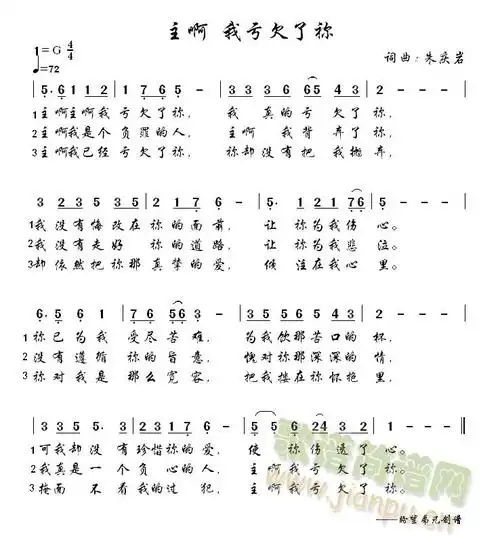 主啊 我亏欠了祢
1=G 4/4
♩=72
词曲:朱庆岩
5·6 1 1 2 | 1 7 6 5 - | 3 3 3 6 6 5 4 5 | 3 - - - |
1主啊主啊我亏欠了祢, 我真的亏欠了祢,
2主啊我是个负罪的人, 主啊我背弃了祢,
3主啊我已经亏欠了祢, 祢却没有把我抛弃,
3 2 3 5 3 5 | 2 1 7 6 - | 5· 1 2 1 7 6 | 5 - - - |
1我没有悔改在祢的面前, 让祢为我伤心。
2我没有走好祢的道路, 让祢为我悲泣。
3却依然把祢那真挚的爱, 倾注在我心里。
6· 5 6 1 | 5 6 7 5 6 3 - | 3 5 5 6 5 4 3 | 2 - - - |
1祢已为我受尽苦难, 为我饮那苦口的杯,
2没有遵循祢的旨意, 愧对祢那深深的情,
3祢对我是那么宽容, 把我搂在祢怀抱里,
3 3 3 5 5 · 3 | 2 3 2 1 7 6 - | 5 5 6 2 4 3 2 | 1 - - - ‖
1可我却没有珍惜祢的爱, 使祢伤透了心。
2我真是一个负心的人, 主啊我亏欠了祢。
3掩面不看我的过犯, 主啊我亏欠了祢。
www.jianpu.cn